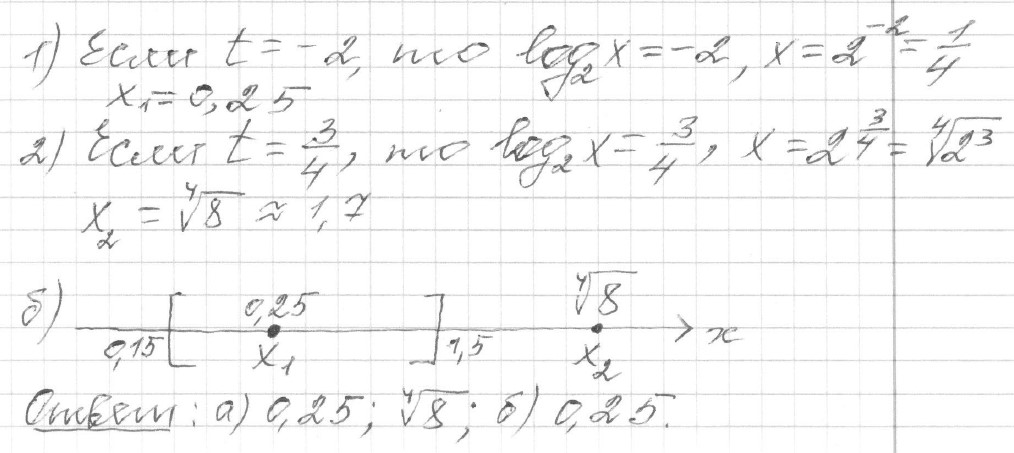 1) Если t = -2, то log₂x = -2, x = 2⁻² = 1/4
x₁ = 0,25
2) Если t = 3/4, то log₂x = 3/4, x = 2^(3/4) = ⁴√2³
x₂ = ⁴√8 ≈ 1,7
б) 0,15 [ 0,25 x₁ ] 1,5 ⁴√8 x₂ x
Ответ: а) 0,25; ⁴√8; б) 0,25.